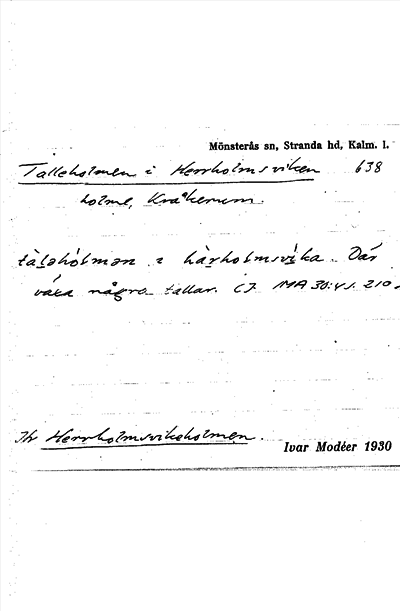 Mönsterås sn, Stranda hd, Kalm. l.
Talleholmen i Herrholmsviken 638
holme, Kråkerum.
tàləhólmən i hàrholmsvìka. Där
växa några tallar. Cf. MA 30:41. 210.
Jfr Herrholmsviksholmen.
Ivar Modéer 1930